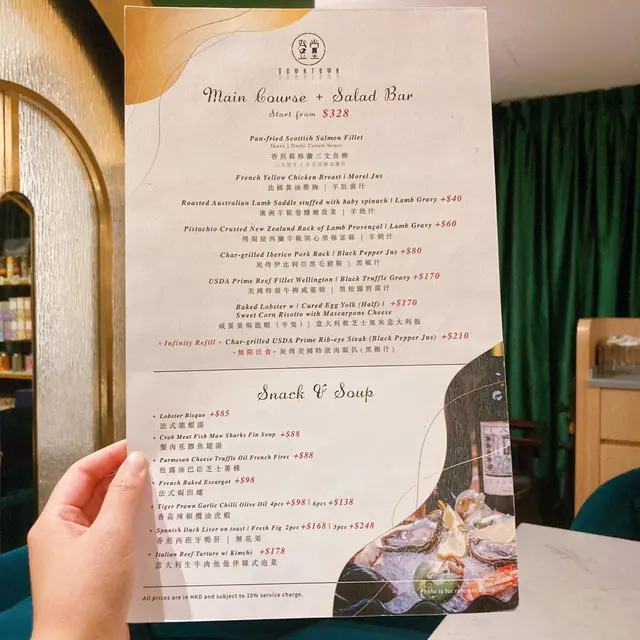 DOWNTOWN
Main Course + Salad Bar
Start from $328
Pan-fried Scottish Salmon Fillet
Ikura | Dashi Cream Sauce
香煎蘇格蘭三文魚柳
French Yellow Chicken Breast | Morel Jus
法國黃油雞胸 | 羊肚菌汁
Roasted Australian Lamb Saddle stuffed with baby spinach | Lamb Gravy +$40
澳洲羊鞍卷釀嫩菠菜 | 羊燒汁
Pistachio Crusted New Zealand Rack of Lamb Provençal | Lamb Gravy +$60
烤焗紐西蘭羊鞍開心果保雲蘇 | 羊燒汁
Char-grilled Iberico Pork Rack | Black Pepper Jus +$80
炭烤伊比利亞黑毛豬鞍 | 黑椒汁
USDA Prime Beef Fillet Wellington | Black Truffle Gravy +$170
美國特級牛柳威靈頓 | 黑松露野菌汁
Baked Lobster w/ Cured Egg Yolk (Half) | +$170
Sweet Corn Risotto with Mascarpone Cheese
咸蛋黃焗龍蝦 (半隻) | 意大利軟芝士粟米意大利飯
• Infinity Refill • Char-grilled USDA Prime Rib-eye Steak (Black Pepper Jus) +$210
•無限任食• 炭烤美國特級肉眼扒 (黑椒汁)
Snack & Soup
• Lobster Bisque +$85
法式龍蝦湯
• Crab Meat Fish Maw Sharks Fin Soup +$88
蟹肉花膠魚翅湯
• Parmesan Cheese Truffle Oil French Fires +$88
松露油巴臣芝士薯條
• French Baked Escargot +$98
法式焗田螺
• Tiger Prawn Garlic Chilli Olive Oil 4pcs +$98 \ 6pcs +$138
香蒜辣椒欖油虎蝦
• Spanish Duck Liver on toast | Fresh Fig 2pcs +$168 \ 3pcs +$248
香煎西班牙鴨肝 | 無花果
• Italian Beef Tartare w/ Kimchi +$178
意大利生牛肉他他伴韓式泡菜
All prices are in HKD and subject to 10% service charge.
Photo is for reference